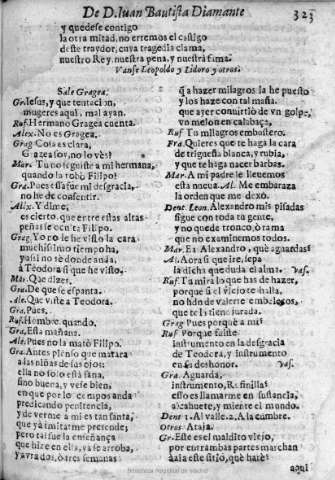 De D. Iuan Bautista Diamante 323
y quedese contigo
la otra mitad, no erremos el castigo
deste traydor, cuya tragedia clama,
nuestro Rey, nuestra pena, y nuestra fama.
Vanse Leopoldo y Lidoro y otros.
Sale Gragea.
Gr. Iesus, y que tentacion,
mugeres aqui, mal ayan.
Ruf. Hermano Gragea cuenta.
Alex. No es Gragea.
Grag. Cosa es clara,
Grageasoy, no lo vès?
Mar. Tu no seguiste a mi hermana,
quando la robò Filipo?
Gra. Pues essa fue mi desgracia,
no he de consentir.
Alex. Y dime,
es cierto, que entre estas altas
peñas se cuenta Filipo.
Grag. Yo no le he visto la cara
muchissimo tiempo ha,
y assi no sè donde anda,
à Teodora si que he visto.
Mar. Que dizes.
Gra. De que se espanta.
Ale. Que viste a Teodora.
Gra. Pues.
Ruf. Hombre, quando.
Gra. Esta mañana.
Ale. Pues no la matò Filipo.
Gra. Antes pienso que matara
a las niñas de sus ojos;
ella no solo està sana,
sino buena, y vese bien,
en que por los campos anda
predicando penitencia,
y de verme a mi es tan santa,
que ya imitarme pretende;
pero tal fue la enseñança
que hize en ella, ya se arroba,
y ayrados, ò tres semanas
q̃ a hazer milagros la he puesto
y los haze con tal maña,
que ayer conuirtiò de vn golpe,
vn melon en calabaça,
Ruf. Tu milagros embustero.
Fra. Quieres que te haga la cara
de trigueña blanca, y rubia,
y que te haga nacer barbas.
Mar. A mi padre le lleuemos
esta nueua. Al. Me embaraza
la orden que me dexò.
Dent. Leon. Alexandro mis pisadas
sigue con toda tu gente,
y no quede tronco, ò rama
que no examinemos todos.
Mar. Ea Alexandro, què aguardas?
Al. Aora si que ire, sepa
la dicha que duda el alma. Vas.
Ruf. Tu mira lo que has de hazer,
porque si el viejo te halla,
no hãn de valerte embelecos,
que te las tiene jurada.
Grag. Pues porque a mi?
Ruf. Porque fuiste
instrumento en la desgracia
de Teodora, y instrumento
en su deshonor. Vas.
Gra. Aguarda,
instrumento, Rufinillas
esso es llamarme en sustancia,
alcahuete, y miente el mundo.
Dent. 1. Al valle. 2. A la cumbre.
Otros. Ataja.
Gr. Este es el maldito viejo,
por entrambas partes marchan
aqui